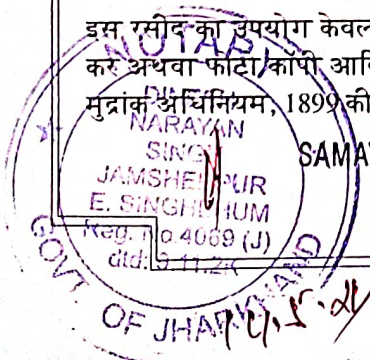 इस रसीद का उपयोग केवल
कर अथवा फोटो कॉपी आदि
मुद्रांक अधिनियम, 1899 की
NOTARY
NARAYAN
SINGH
JAMSHEDPUR
E. SINGHBHUM
Reg. No.4069 (J)
GOVT. OF JHARKHAND